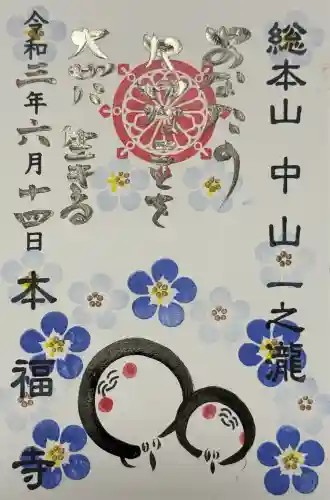 総本山 中山一之瀧
あなたの
大切に
生きる
令和三年六月十四日 本福寺